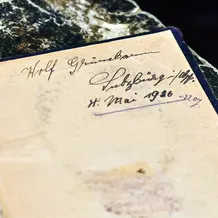 Wolf Grünebaum
Sulzburg i/Bd.
4. Mai 1926